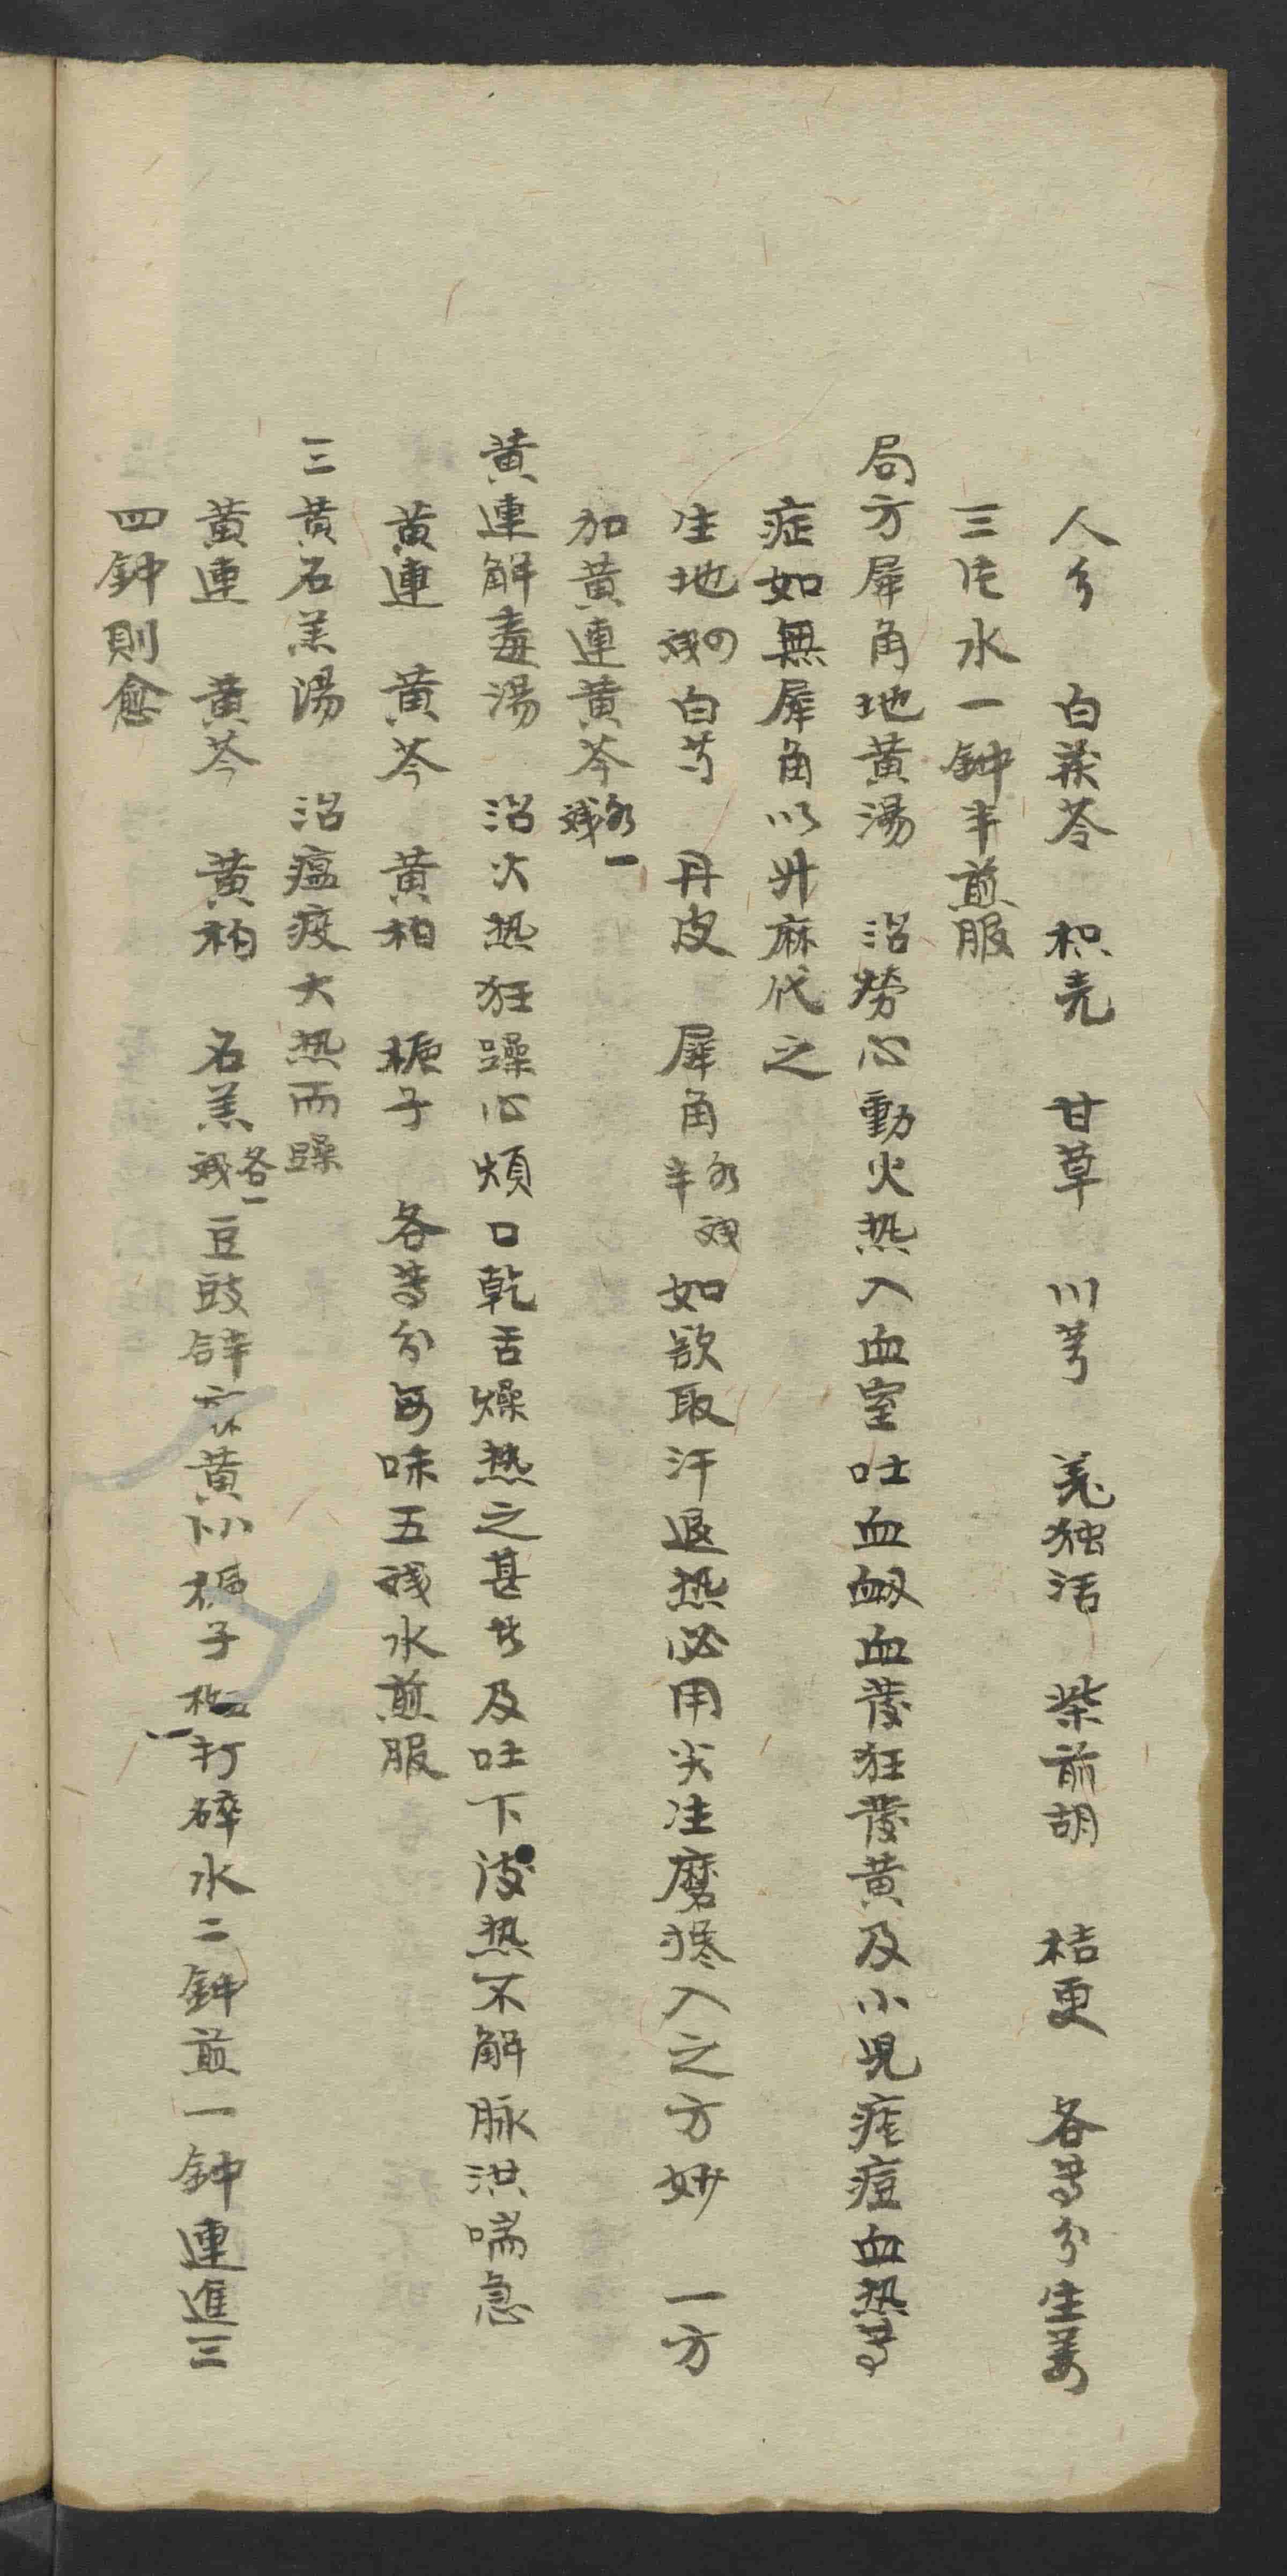 人参 白茯苓 枳壳 甘草 川芎 羌独活 柴前胡 桔更 各等分生姜
三片水一鈡半煎服
局方犀角地黄湯 治劳心動火热入血室吐血衂血發狂發黄及小児疮痘血热等
症如無犀角以升麻代之
生地四戔白芍 丹皮 犀角各戔半如欲取汗退热必用尖生磨搀入之方妙 一方
加黄連黄芩各一戔
黄連解毒湯 治火热狂躁心煩口乾舌燥热之甚者及吐下後热不解脉洪喘急
黄連 黄芩 黄柏 栀子 各等分每味五戔水煎服
三黄石羔湯 治瘟疫大热而躁
黄連 黄芩 黄柏 石羔各一戔豆豉 麻黄 栀子 打碎水二鈡煎一鈡連進三
四鈡則愈